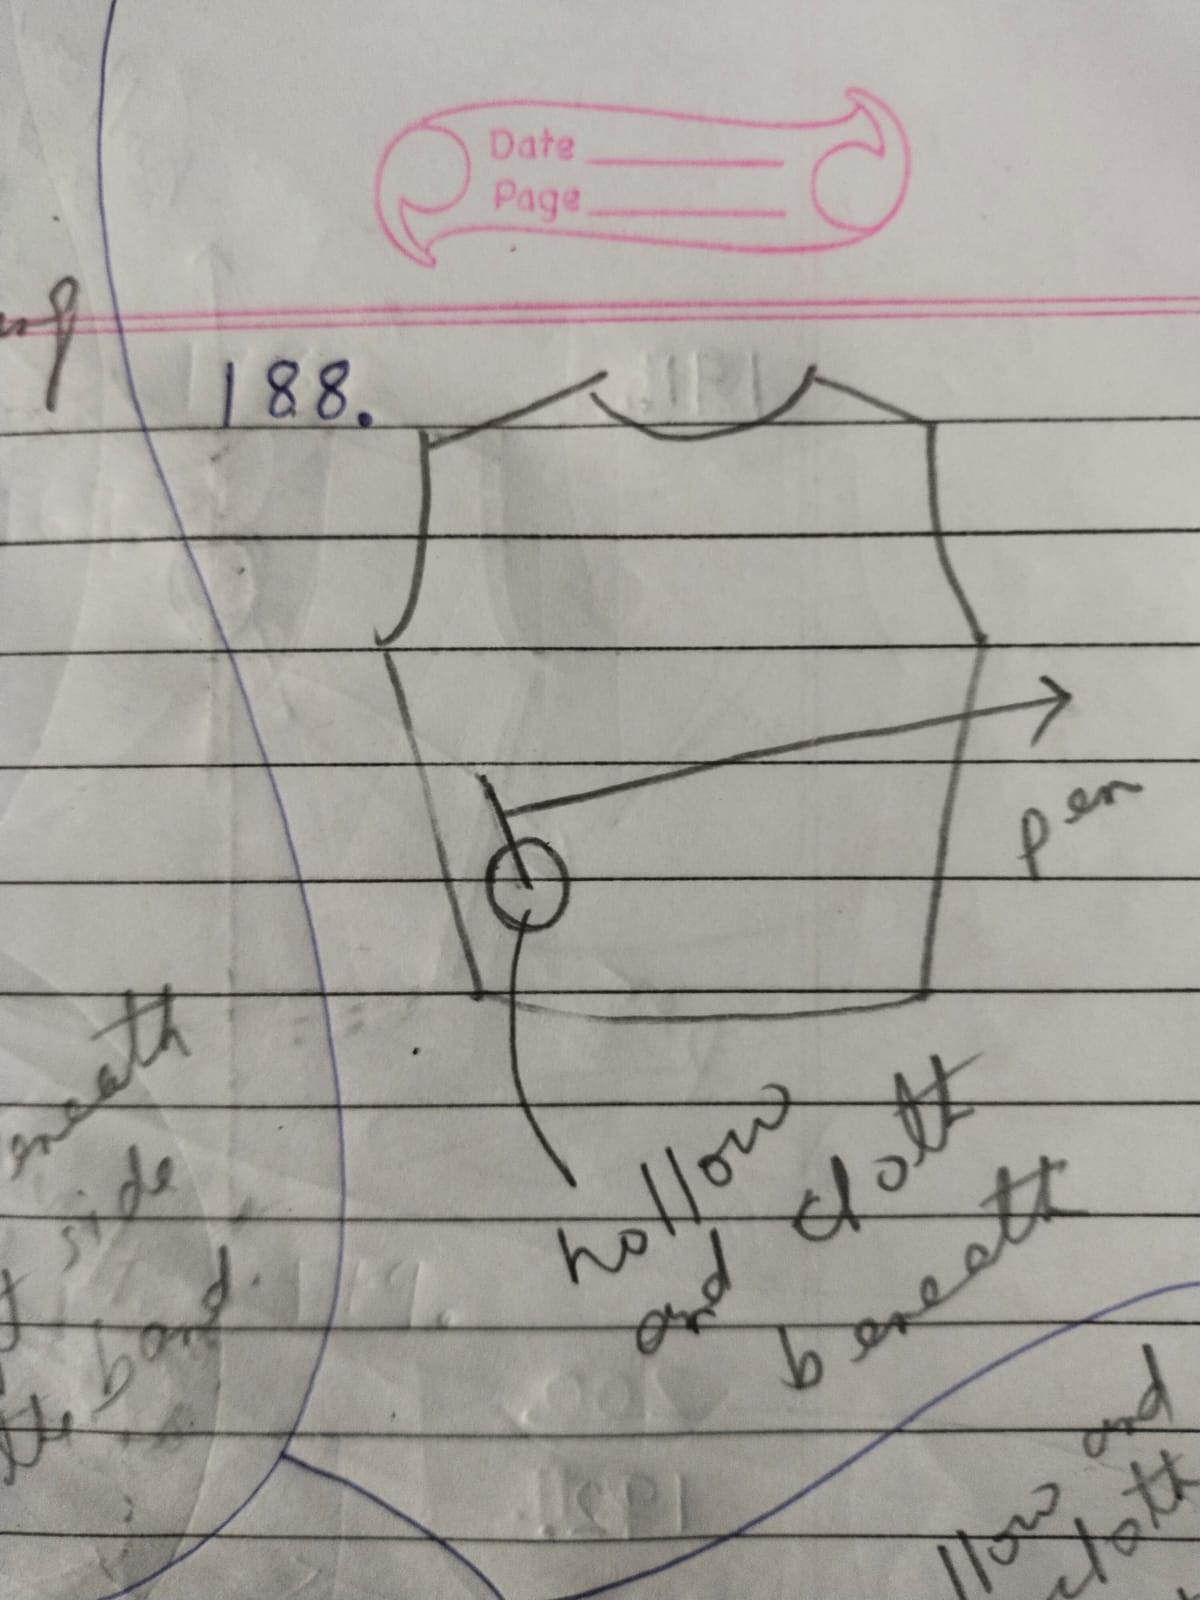 Date
Page
188.
pen
hollow
and cloth
beneath
eneath
side
the band.
and
llow
cloth